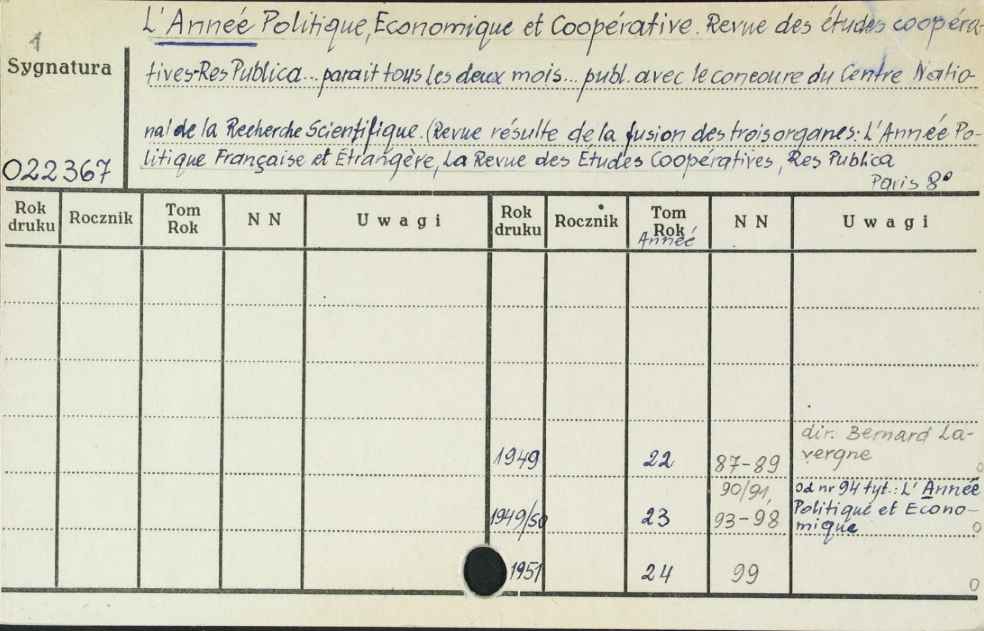 L'Anneé Politique, Economique et Coopérative. Revue des études coopéra-
1
Sygnatura
tives-Res Publica... parait tous les deux mois... publ. avec le concoure du Centre Natio-
nal de la Recherche Scientifique. (Revue résulte de la fusion des trois organes: L'Anneé Po-
022367
litique Française et Étrangère, La Revue des Études Coopératives, Res Publica
Paris 8°
Rok druku Rocznik Tom Rok NN Uwagi Rok druku Rocznik Tom Rok NN Uwagi
Anneé
1949 22 87-89 dir. Bernard La-
vergne
o
1949/50 23 90/91, 93-98 od nr 94 tyt.: L'Anneé
Politique et Econo-
mique
o
1951 24 99
o